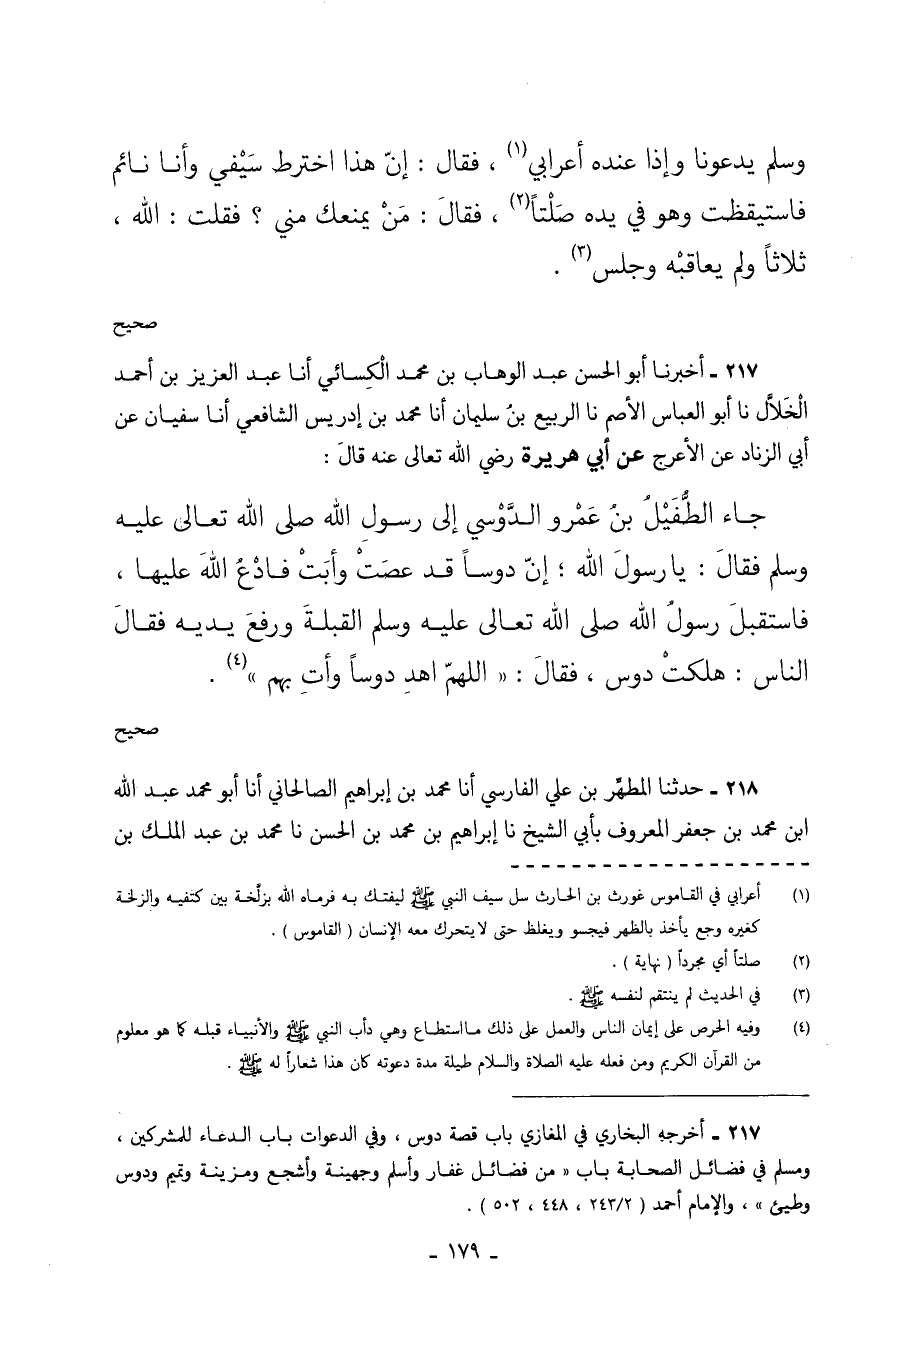 وسلم يدعونا وإذا عنده أعرابي(١) ، فقال : إنّ هذا اخترط سَيْفي وأنا نائم
فاستيقظت وهو في يده صَلْتاً(٢) ، فقالَ : مَنْ يمنعك مني ؟ فقلت : الله ،
ثلاثاً ولم يعاقبْه وجلس(٣) .
صحيح
٢١٧ ـ أخبرنا أبو الحسن عبد الوهاب بن محمد الْكِسائي أنا عبد العزيز بن أحمد
الْخَلاَّل نا أبو العباس الأصم نا الربيع بنُ سليمان أنا محمد بن إدريس الشافعي أنا سفيان عن
أبي الزناد عن الأعرج عن أبي هريرة رضي الله تعالى عنه قالَ :
جاء الطُّفَيْلُ بنُ عَمْرو الدَّوْسي إلى رسول الله صلى الله تعالى عليه
وسلم فقالَ : يا رسولَ الله ؛ إنّ دوساً قد عصَتْ وأبَتْ فادْعُ اللهَ عليها ،
فاستقبلَ رسولُ الله صلى الله تعالى عليه وسلم القبلةَ ورفعَ يديه فقالَ
الناس : هلكتْ دوس ، فقالَ : « اللهمّ اهدِ دوساً وأتِ بهم »(٤) .
صحيح
٢١٨ ـ حدثنا المطهَّر بن علي الفارسي أنا محمد بن إبراهيم الصالحاني أنا أبو محمد عبد الله
ابن محمد بن جعفر المعروف بأبي الشيخ نا إبراهيم بن محمد بن الحسن نا محمد بن عبد الملك بن
(١) أعرابي في القاموس غورث بن الحارث سل سيف النبي ﷺ ليفتك به فرماه الله بزلّخة بين كتفيه والزلخة
كغيره وجع يأخذ بالظهر فيجسو ويغلظ حتى لا يتحرك معه الإنسان ( القاموس ) .
(٢) صلتاً أي مجرداً ( نهاية ) .
(٣) في الحديث لم ينتقم لنفسه ﷺ .
(٤) وفيه الحرص على إيمان الناس والعمل على ذلك ما استطاع وهي دأب النبي ﷺ والأنبياء قبله كما هو معلوم
من القرآن الكريم ومن فعله عليه الصلاة والسلام طيلة مدة دعوته كان هذا شعاراً له ﷺ .
٢١٧ ـ أخرجه البخاري في المغازي باب قصة دوس ، وفي الدعوات باب الدعاء للمشركين ،
ومسلم في فضائل الصحابة باب « من فضائل غفار وأسلم وجهينة وأشجع ومزينة وتميم ودوس
وطيئ » ، والإمام أحمد ( ٢٤٣/٢ ، ٤٤٨ ، ٥٠٢ ) .
ـ ١٧٩ ـ